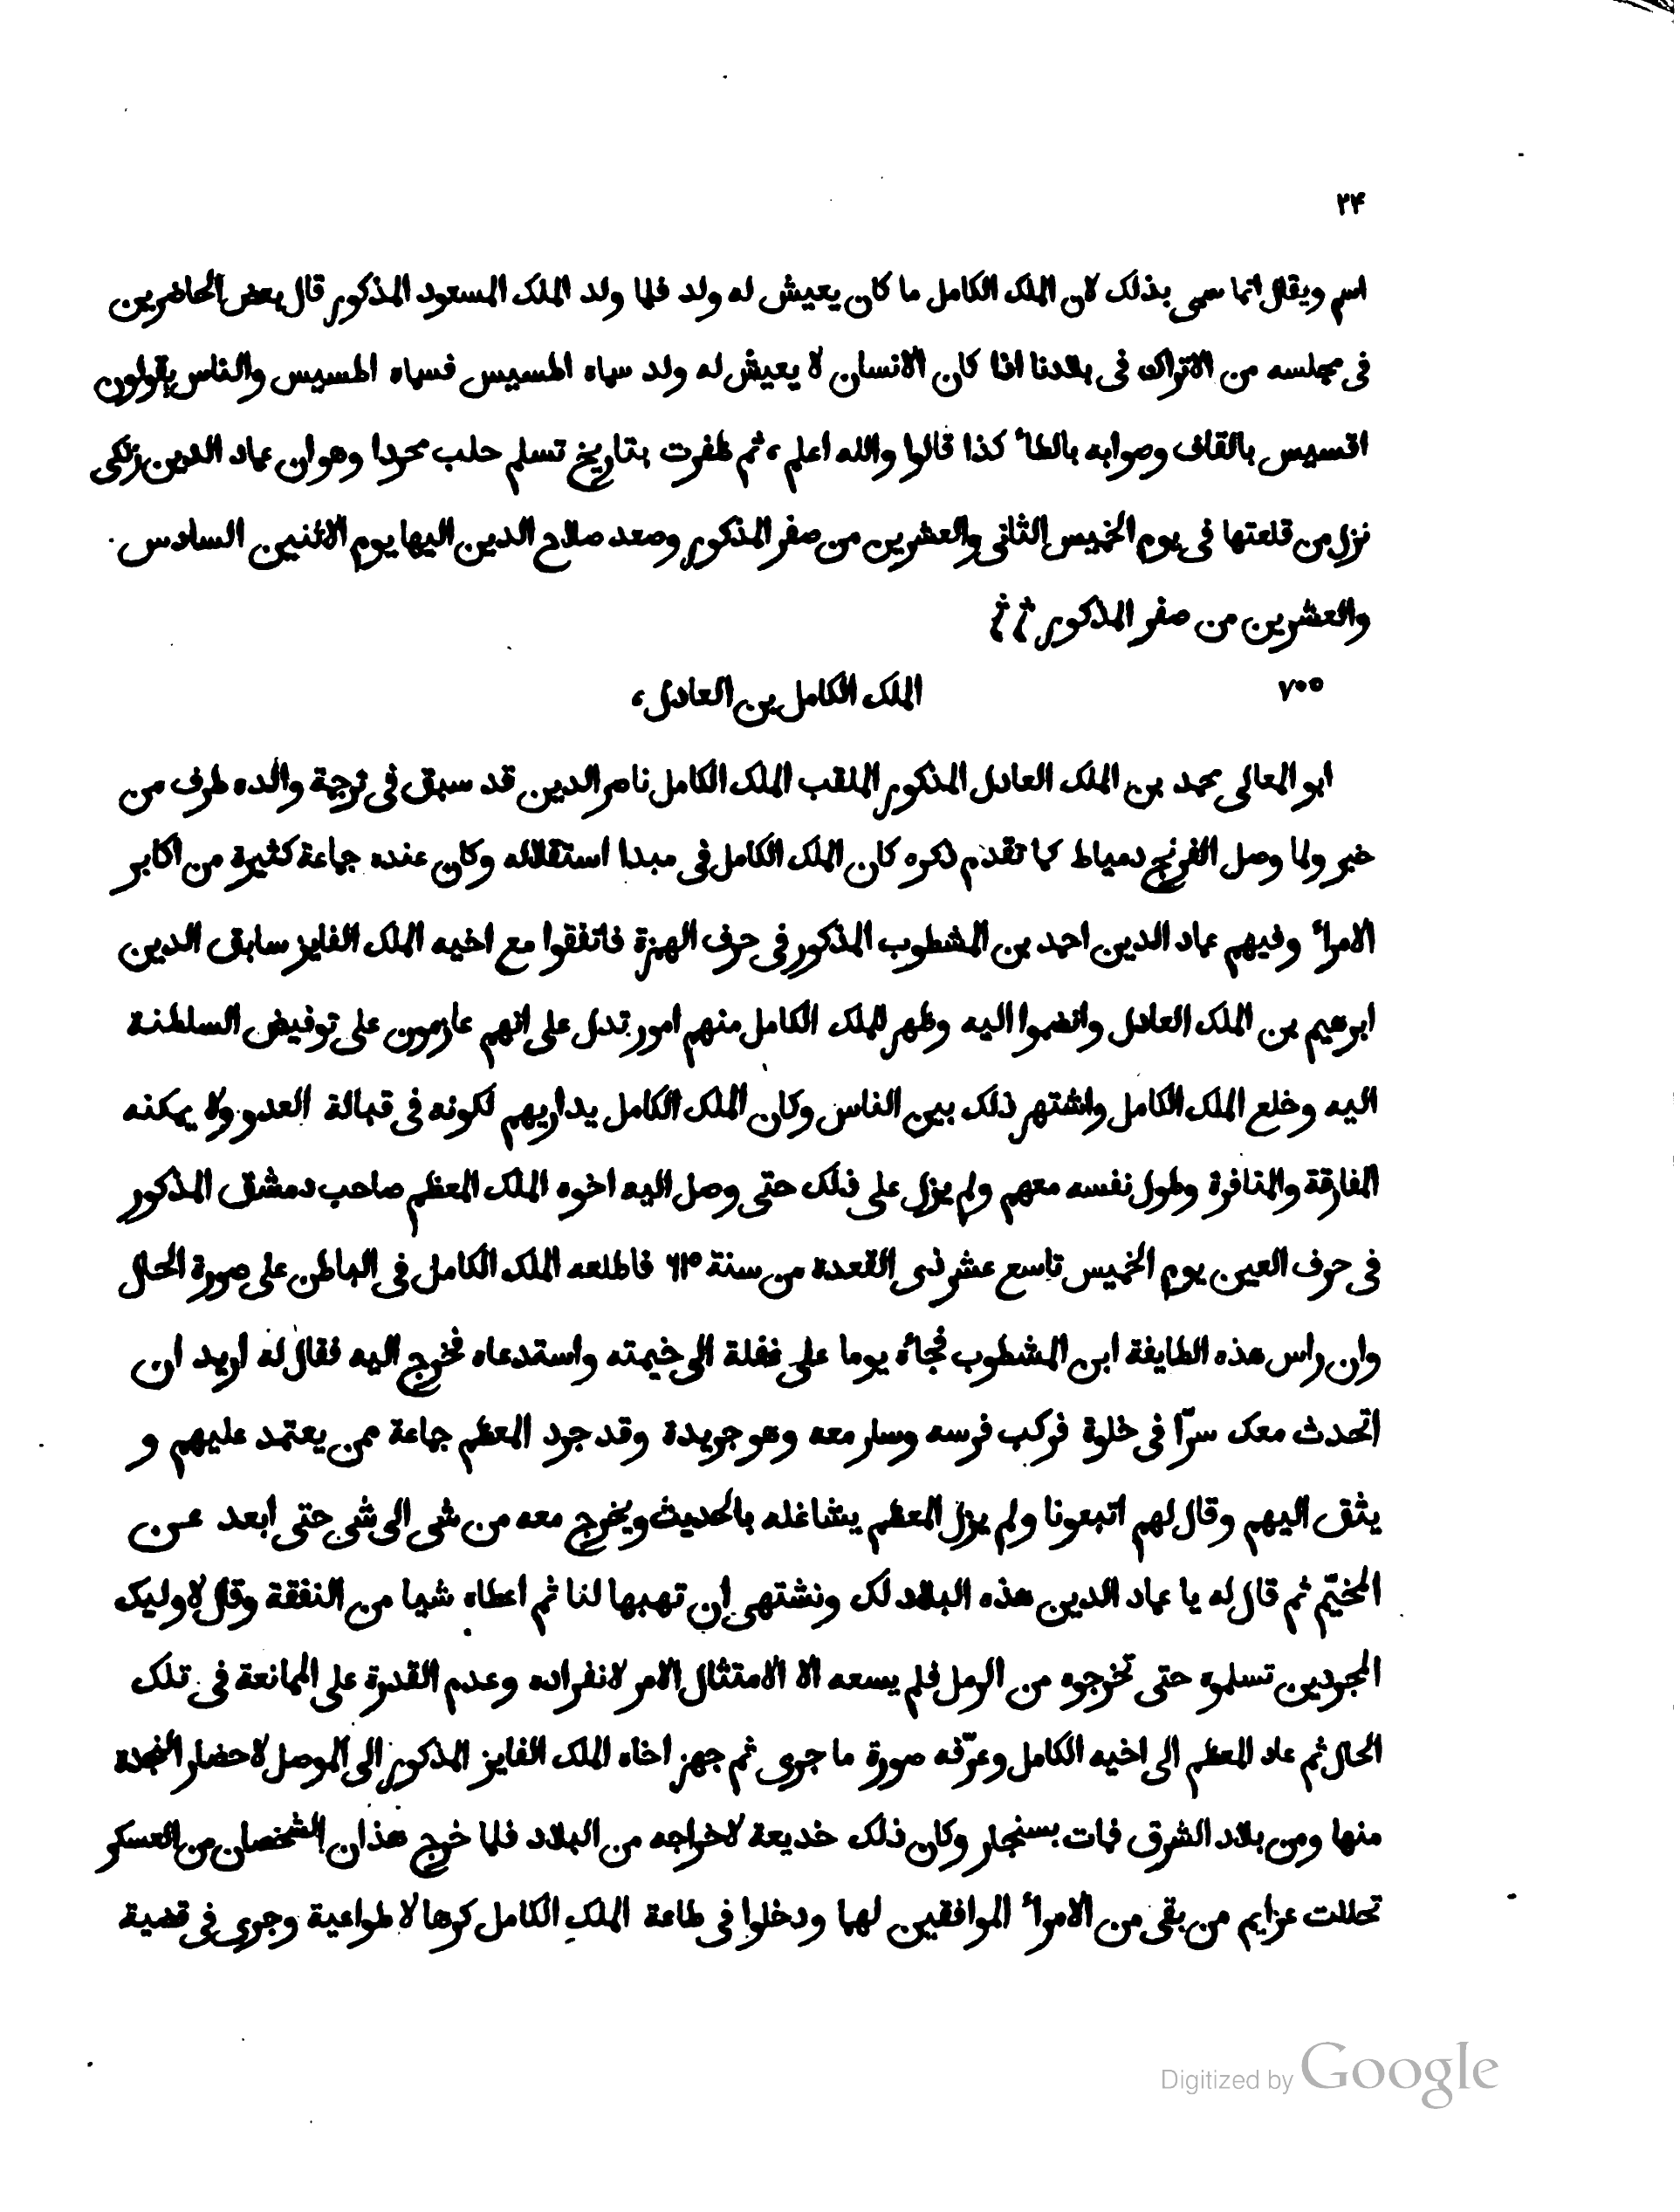 ٢۴
اسم ويقال انما سمى بذلك لان الملك الكامل ما كان يعيش له ولد فلما ولد الملك المسعود المذكور قال بعض الحاضرين
فى مجلسه من الاتراك فى بلادنا اذا كان الانسان لا يعيش له ولد سماه اطسيس فسماه اطسيس والناس يقولون
اقسيس بالقاف وصوابه بالطاء كذا قالوا والله اعلم، ثم ظفرت بتاريخ تسلم حلب محررا وهو ان عماد الدين زنكى
نزل من قلعتها فى يوم الخميس الثانى والعشرين من صفر المذكور وصعد صلاح الدين اليها يوم الاثنين السادس
والعشرين من صفر المذكور
٧٠٥ الملك الكامل بن العادل،
ابو المعالى محمد بن الملك العادل المذكور الملقب الملك الكامل ناصر الدين قد سبق فى ترجمة والده طرف من
خبر ولما وصل الفرنج دمياط كما تقدم ذكره كان الملك الكامل فى مبدا استقلاله وكان عنده جماعة كثيرة من اكابر
الامراء وفيهم عماد الدين احمد بن المشطوب المذكور فى حرف الهمزة فاتفقوا مع اخيه الملك الفايز سابق الدين
ابرهيم بن الملك العادل وانضموا اليه وظهر للملك الكامل منهم امور تدل على انهم عازمون على توفيض السلطنة
اليه وخلع الملك الكامل واشتهر ذلك بين الناس وكان الملك الكامل يداريهم لكونه فى قبالة العدو ولا يمكنه
المفارقة والمنافرة وطول نفسه معهم ولم يزل على ذلك حتى وصل اليه اخوه الملك المعظم صاحب دمشق المذكور
فى حرف العين يوم الخميس تاسع عشر ذى القعدة من سنة فاطلعه الملك الكامل فى الباطن على صورة الحال
وان راس هذه الطايفة ابن المشطوب فجاءه يوما على غفلة الى خيمته واستدعاه فخرج اليه فقال له اريد ان
اتحدث معك سرّا فى خلوة فركب فرسه وسار معه وهو جريدة وقد جرد المعظم جماعة ممن يعتمد عليهم و
يثق اليهم وقال لهم اتبعونا ولم يزل المعظم يشاغله بالحديث ويخرج معه من شى الى شى حتى ابعد عن
المخيّم ثم قال له يا عماد الدين هذه البلاد لك ونشتهى ان تهبها لنا ثم اعطاه شيا من النفقة وقال لاوليك
المجردين تسلموه حتى تخرجوه من الرمل فلم يسعه الا الامتثال الامر لانفراده وعدم القدرة على الممانعة فى تلك
الحال ثم عاد المعظم الى اخيه الكامل وعرّفه صورة ما جرى ثم جهز اخاه الملك الفايز المذكور الى الموصل لاحضار النجدة
منها ومن بلاد الشرق فمات بسنجار وكان ذلك خديعة لاخراجه من البلاد فلما خرج هذان الشخصان من العسكر
تحللت عزايم من بقى من الامراء الموافقين لهما ودخلوا فى طاعة الملك الكامل كرها لا طواعية وجرى فى قضية
Digitized by Google